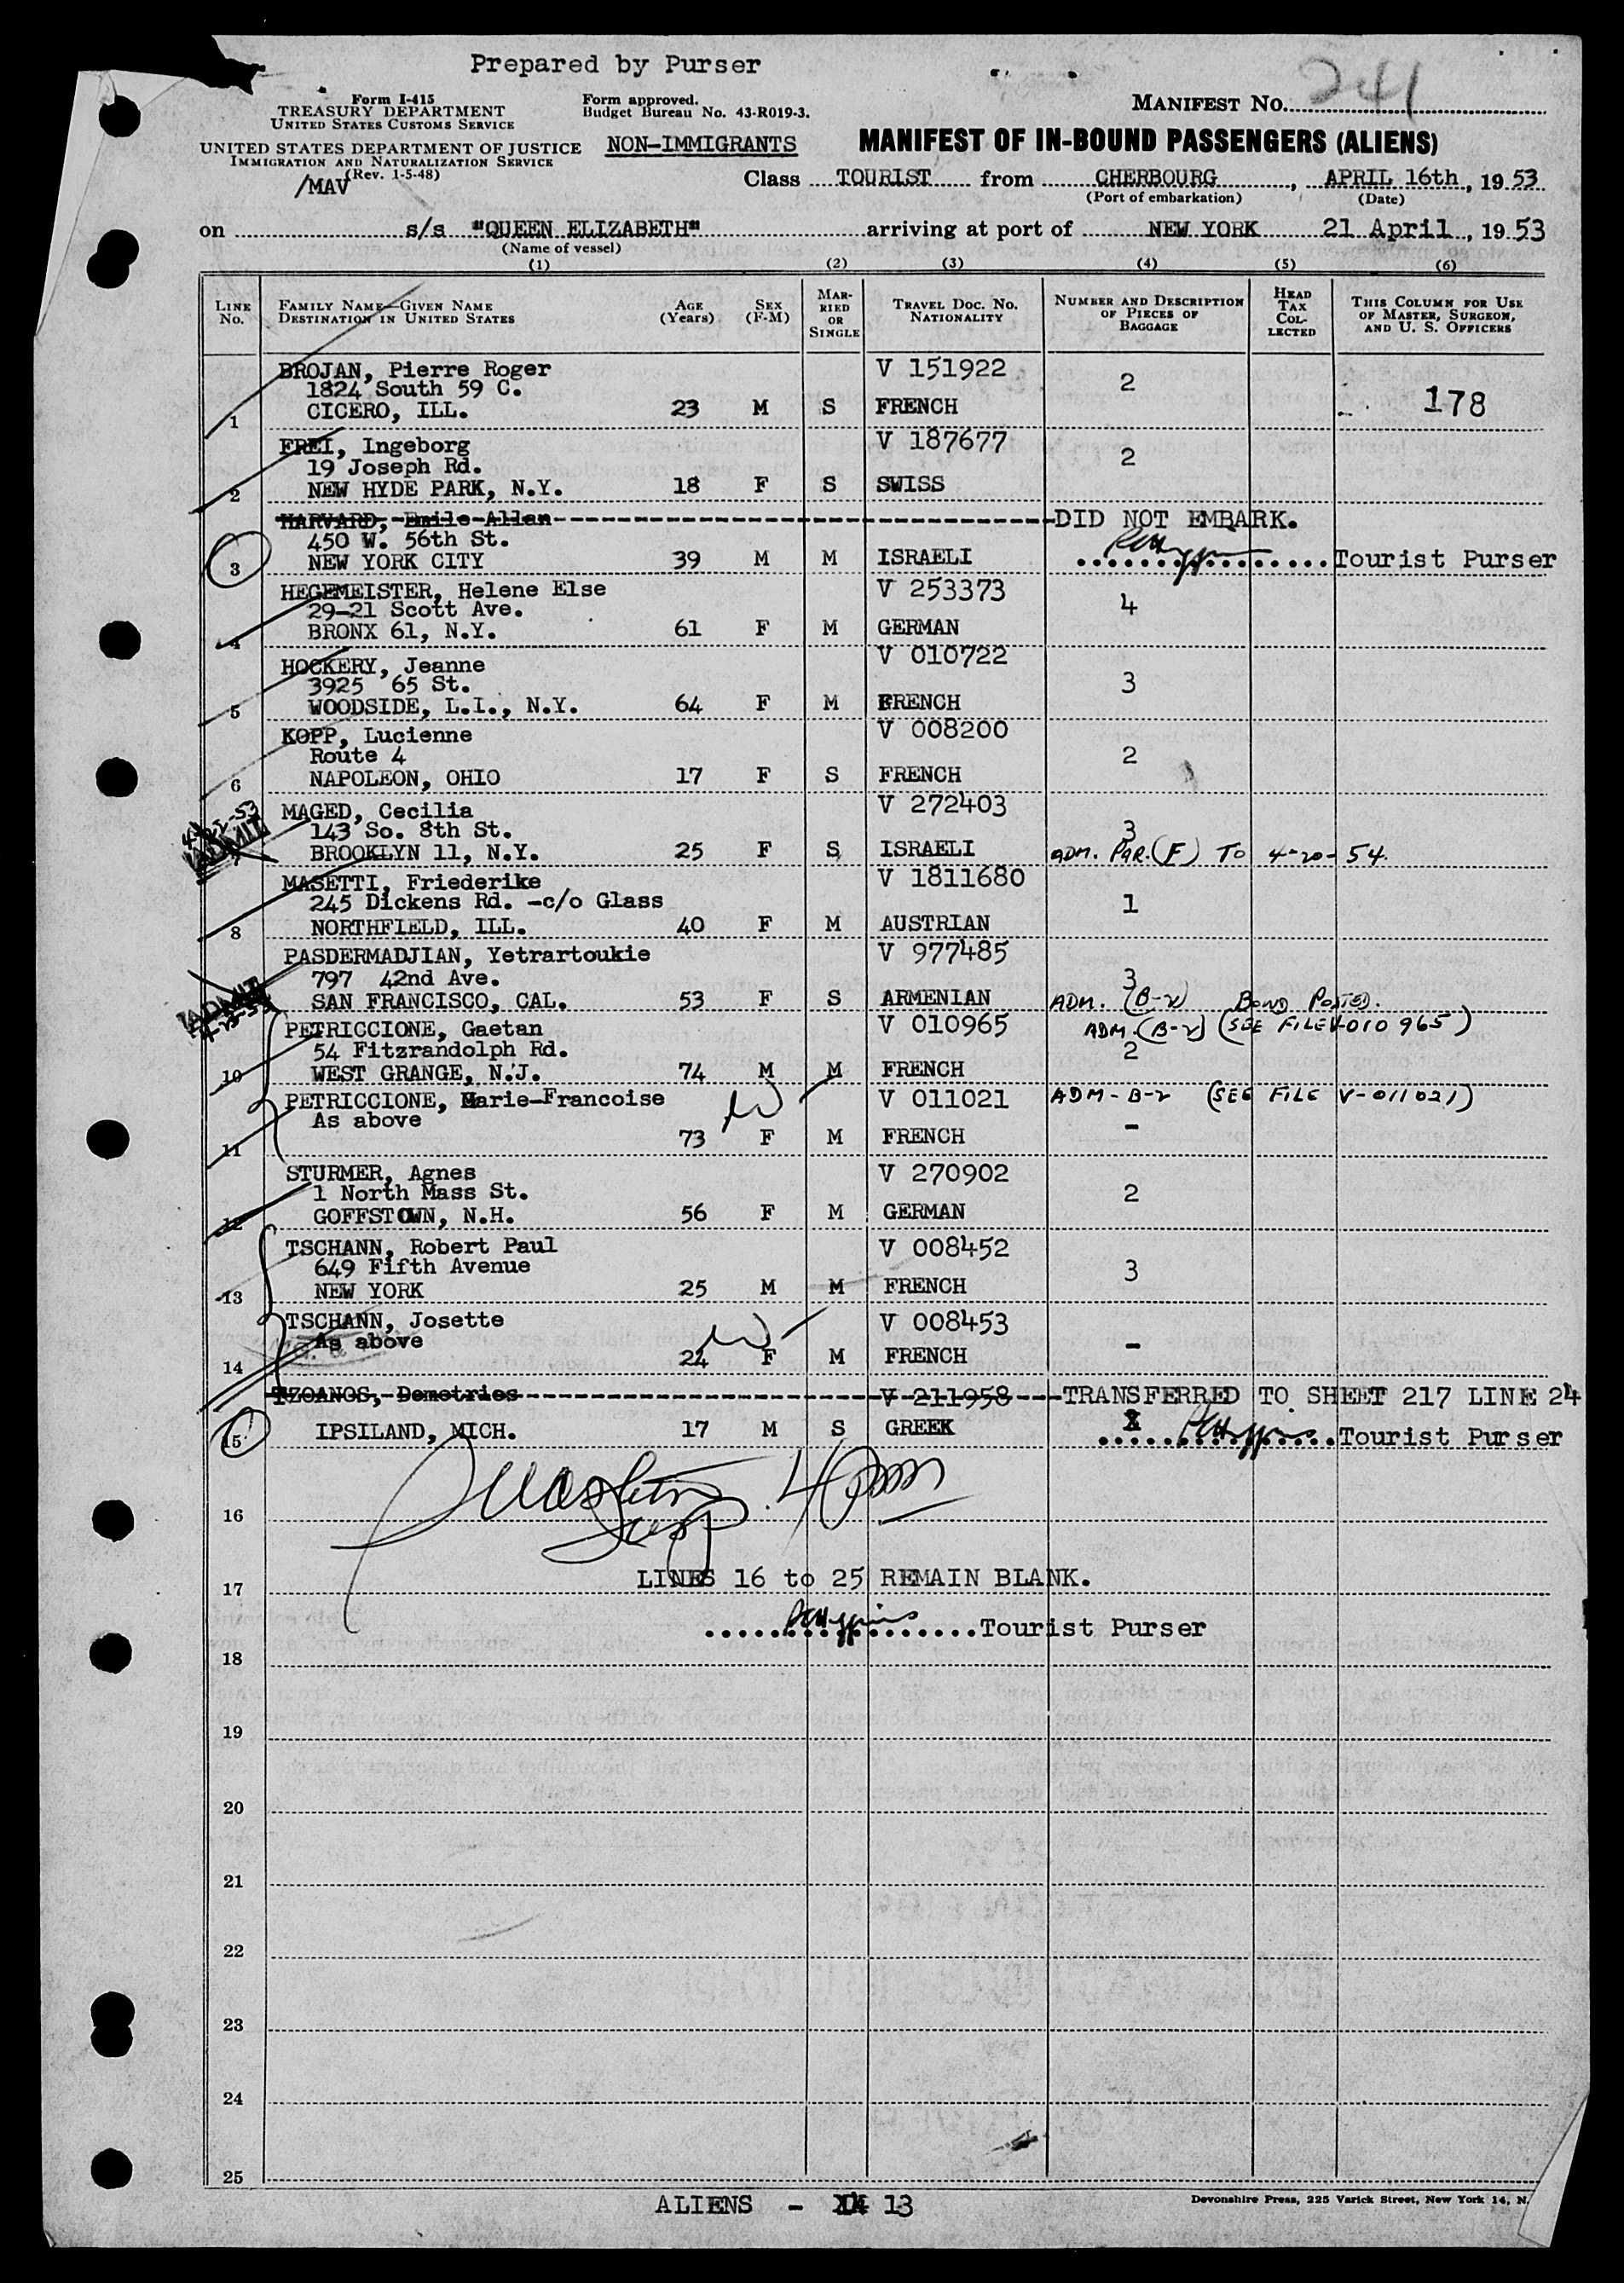 Prepared by Purser
241
Form I-415
TREASURY DEPARTMENT
UNITED STATES CUSTOMS SERVICE
UNITED STATES DEPARTMENT OF JUSTICE
IMMIGRATION AND NATURALIZATION SERVICE
(Rev. 1-5-48)
/MAV
Form approved.
Budget Bureau No. 43-R019-3.
NON-IMMIGRANTS
MANIFEST NO.
MANIFEST OF IN-BOUND PASSENGERS (ALIENS)
Class TOURIST from CHERBOURG, APRIL 16th, 1953
(Port of embarkation) (Date)
on s/s "QUEEN ELIZABETH" arriving at port of NEW YORK 21 April, 1953
(Name of vessel)
(1) (2) (3) (4) (5) (6)
LINE No. FAMILY NAME—GIVEN NAME DESTINATION IN UNITED STATES AGE (Years) SEX (F-M) MARRIED OR SINGLE TRAVEL DOC. NO. NATIONALITY NUMBER AND DESCRIPTION OF PIECES OF BAGGAGE HEAD TAX COLLECTED THIS COLUMN FOR USE OF MASTER, SURGEON, AND U. S. OFFICERS
BROJAN, Pierre Roger V 151922
1824 South 59 C. 2
1 CICERO, ILL. 23 M S FRENCH 178
FREI, Ingeborg V 187677
19 Joseph Rd. 2
2 NEW HYDE PARK, N.Y. 18 F S SWISS
HARVARD, Emile Allan DID NOT EMBARK.
450 W. 56th St.
3 NEW YORK CITY 39 M M ISRAELI Tourist Purser
HEGEMEISTER, Helene Else V 253373
29-21 Scott Ave. 4
4 BRONX 61, N.Y. 61 F M GERMAN
HOCKERY, Jeanne V 010722
3925 65 St. 3
5 WOODSIDE, L.I., N.Y. 64 F M FRENCH
KOPP, Lucienne V 008200
Route 4 2
6 NAPOLEON, OHIO 17 F S FRENCH
4-22-53
ADMIT
MAGED, Cecilia V 272403
143 So. 8th St. 3
BROOKLYN 11, N.Y. 25 F S ISRAELI ADM. PAR. (F) TO 4-20-54.
MASETTI, Friederike V 1811680
245 Dickens Rd. -c/o Glass 1
8 NORTHFIELD, ILL. 40 F M AUSTRIAN
PASDERMADJIAN, Yetrartoukie V 977485
797 42nd Ave. 3
ADMIT
SAN FRANCISCO, CAL. 53 F S ARMENIAN ADM. (B-2) BOND POSTED.
PETRICCIONE, Gaetan V 010965 ADM. (B-2) (SEE FILE V-010965)
54 Fitzrandolph Rd. 2
10 WEST GRANGE, N.J. 74 M M FRENCH
PETRICCIONE, Marie-Francoise V 011021 ADM-B-2 (SEE FILE V-011021)
As above -
11 73 F M FRENCH
STURMER, Agnes V 270902
1 North Mass St. 2
12 GOFFSTOWN, N.H. 56 F M GERMAN
TSCHANN, Robert Paul V 008452
649 Fifth Avenue 3
13 NEW YORK 25 M M FRENCH
TSCHANN, Josette V 008453
As above -
14 24 F M FRENCH
TZOANOS, Demetrios V 211958 TRANSFERRED TO SHEET 217 LINE 24
15 IPSILAND, MICH. 17 M S GREEK Tourist Purser
16
LINES 16 to 25 REMAIN BLANK.
17
Tourist Purser
18
19
20
21
22
23
24
25
ALIENS - 13
Devonshire Press, 225 Varick Street, New York 14, N.